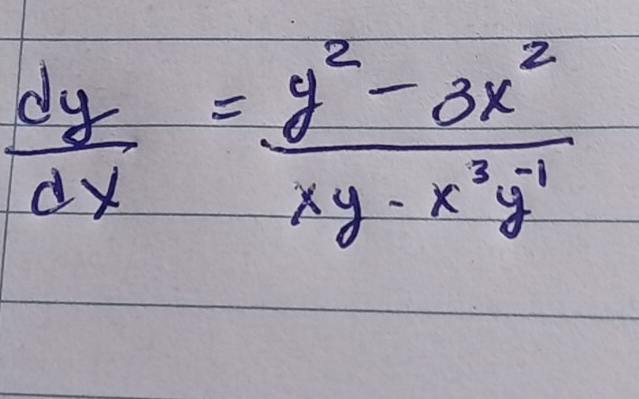 dy/dx = (y² - 3x²)/(xy - x³y⁻¹)